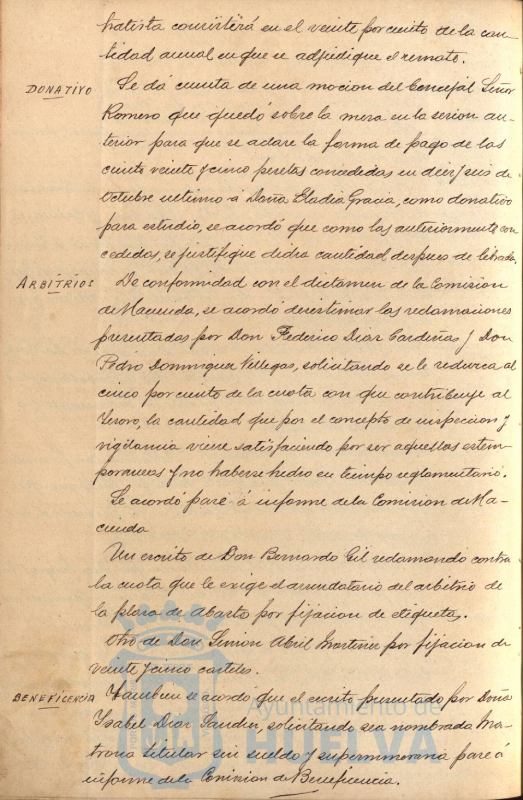 tratista consistirá en el veinte por ciento de la can-
tidad anual en que se adjudique el remate.
DONATIVO
Se dá cuenta de una mocion del Concejal Señor
Romero que quedó sobre la mesa en la sesion an-
terior para que se aclare la forma de pago de las
ciento veinte y cinco pesetas concedidas en diez y seis de
Octubre ultimo á Doña Eladia Gracia, como donativo
para estudio, se acordó que como las anteriormente con
cedidas, se justifique dicha cantidad despues de librada.
ARBITRIOS
De conformidad con el dictamen de la Comision
de Hacienda, se acordó desestimar las reclamaciones
presentadas por Don Federico Diaz Cardeñas y Don
Pedro Dominguez Villegas, solicitando se le reduzca al
cinco por ciento de la cuota con que contribuye al
Tesoro, la cantidad que por el concepto de inspeccion y
vigilancia viene satisfaciendo por ser aquellas extem-
poraneas y no haberse hecho en tiempo reglamentario.
Se acordó pase á informe de la Comision de Ha-
cienda
Un escrito de Don Bernardo Gil reclamando contra
la cuota que le exige el arrendatario del arbitrio de
la plaza de Abasto por fijacion de etiquetas.
Otro de Don Simon Abril Martinez por fijacion de
veinte y cinco carteles.
BENEFICENCIA
Tambien se acordo que el escrito presentado por Doña
Ysabel Diaz Sanchez, solicitando sea nombrada Ma-
trona titular sin sueldo y supernumeraria pase á
informe de la Comision de Beneficencia.
Ayuntamiento de
HUELVA